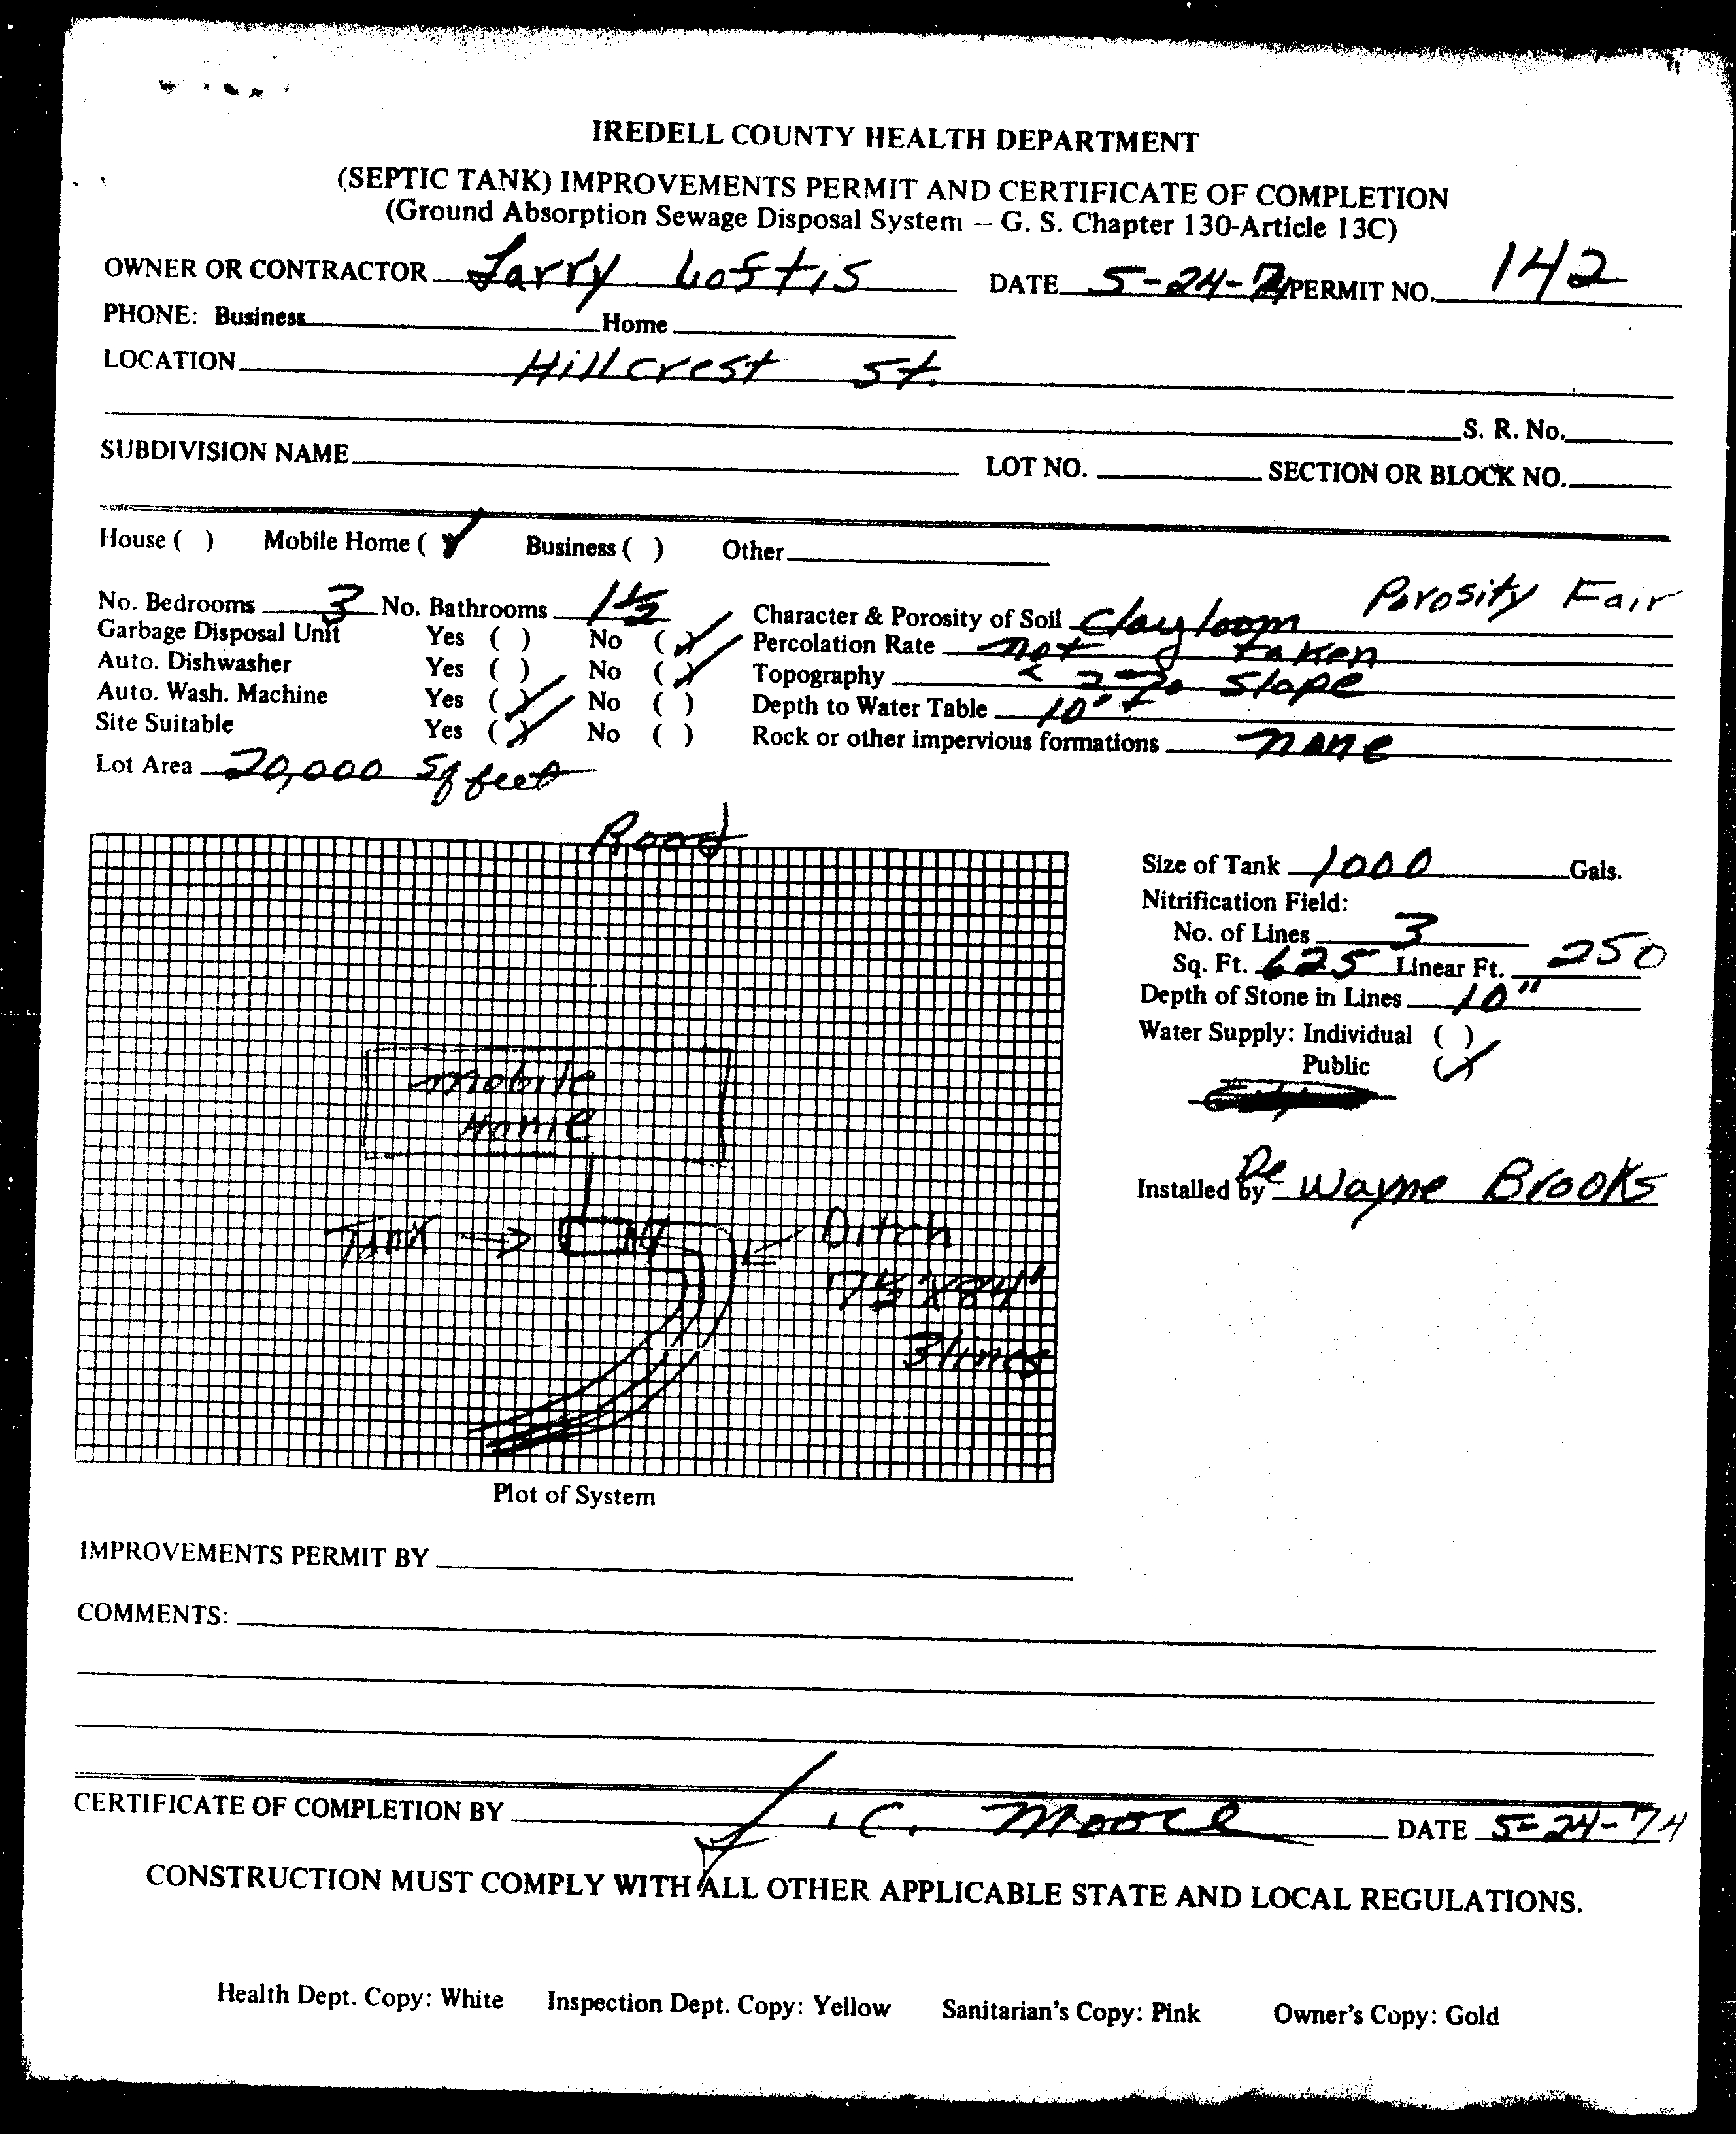 IREDELL COUNTY HEALTH DEPARTMENT
(SEPTIC TANK) IMPROVEMENTS PERMIT AND CERTIFICATE OF COMPLETION
(Ground Absorption Sewage Disposal System – G. S. Chapter 130-Article 13C)
OWNER OR CONTRACTOR Larry Loftis DATE 5-24-74 PERMIT NO. 142
PHONE: Business Home
LOCATION Hillcrest St.
S. R. No.
SUBDIVISION NAME LOT NO. SECTION OR BLOCK NO.
House ( ) Mobile Home (✓) Business ( ) Other
Porosity Fair
No. Bedrooms 3 No. Bathrooms 1½ Character & Porosity of Soil Clay loom
Garbage Disposal Unit Yes ( ) No (✓) Percolation Rate not taken
Auto. Dishwasher Yes ( ) No (✓) Topography < 2% slope
Auto. Wash. Machine Yes (✓) No ( ) Depth to Water Table 10'+
Site Suitable Yes (✓) No ( ) Rock or other impervious formations none
Lot Area 20,000 sq feet
Road
Size of Tank 1000 Gals.
Nitrification Field:
No. of Lines 3
Sq. Ft. 625 Linear Ft. 250
Depth of Stone in Lines 10"
Water Supply: Individual ( )
Public (✓)
mobile
Home
Installed by De Wayne Brooks
Tank → Ditch
3 lines
Plot of System
IMPROVEMENTS PERMIT BY
COMMENTS:
CERTIFICATE OF COMPLETION BY J.C. Moore DATE 5-24-74
CONSTRUCTION MUST COMPLY WITH ALL OTHER APPLICABLE STATE AND LOCAL REGULATIONS.
Health Dept. Copy: White Inspection Dept. Copy: Yellow Sanitarian's Copy: Pink Owner's Copy: Gold